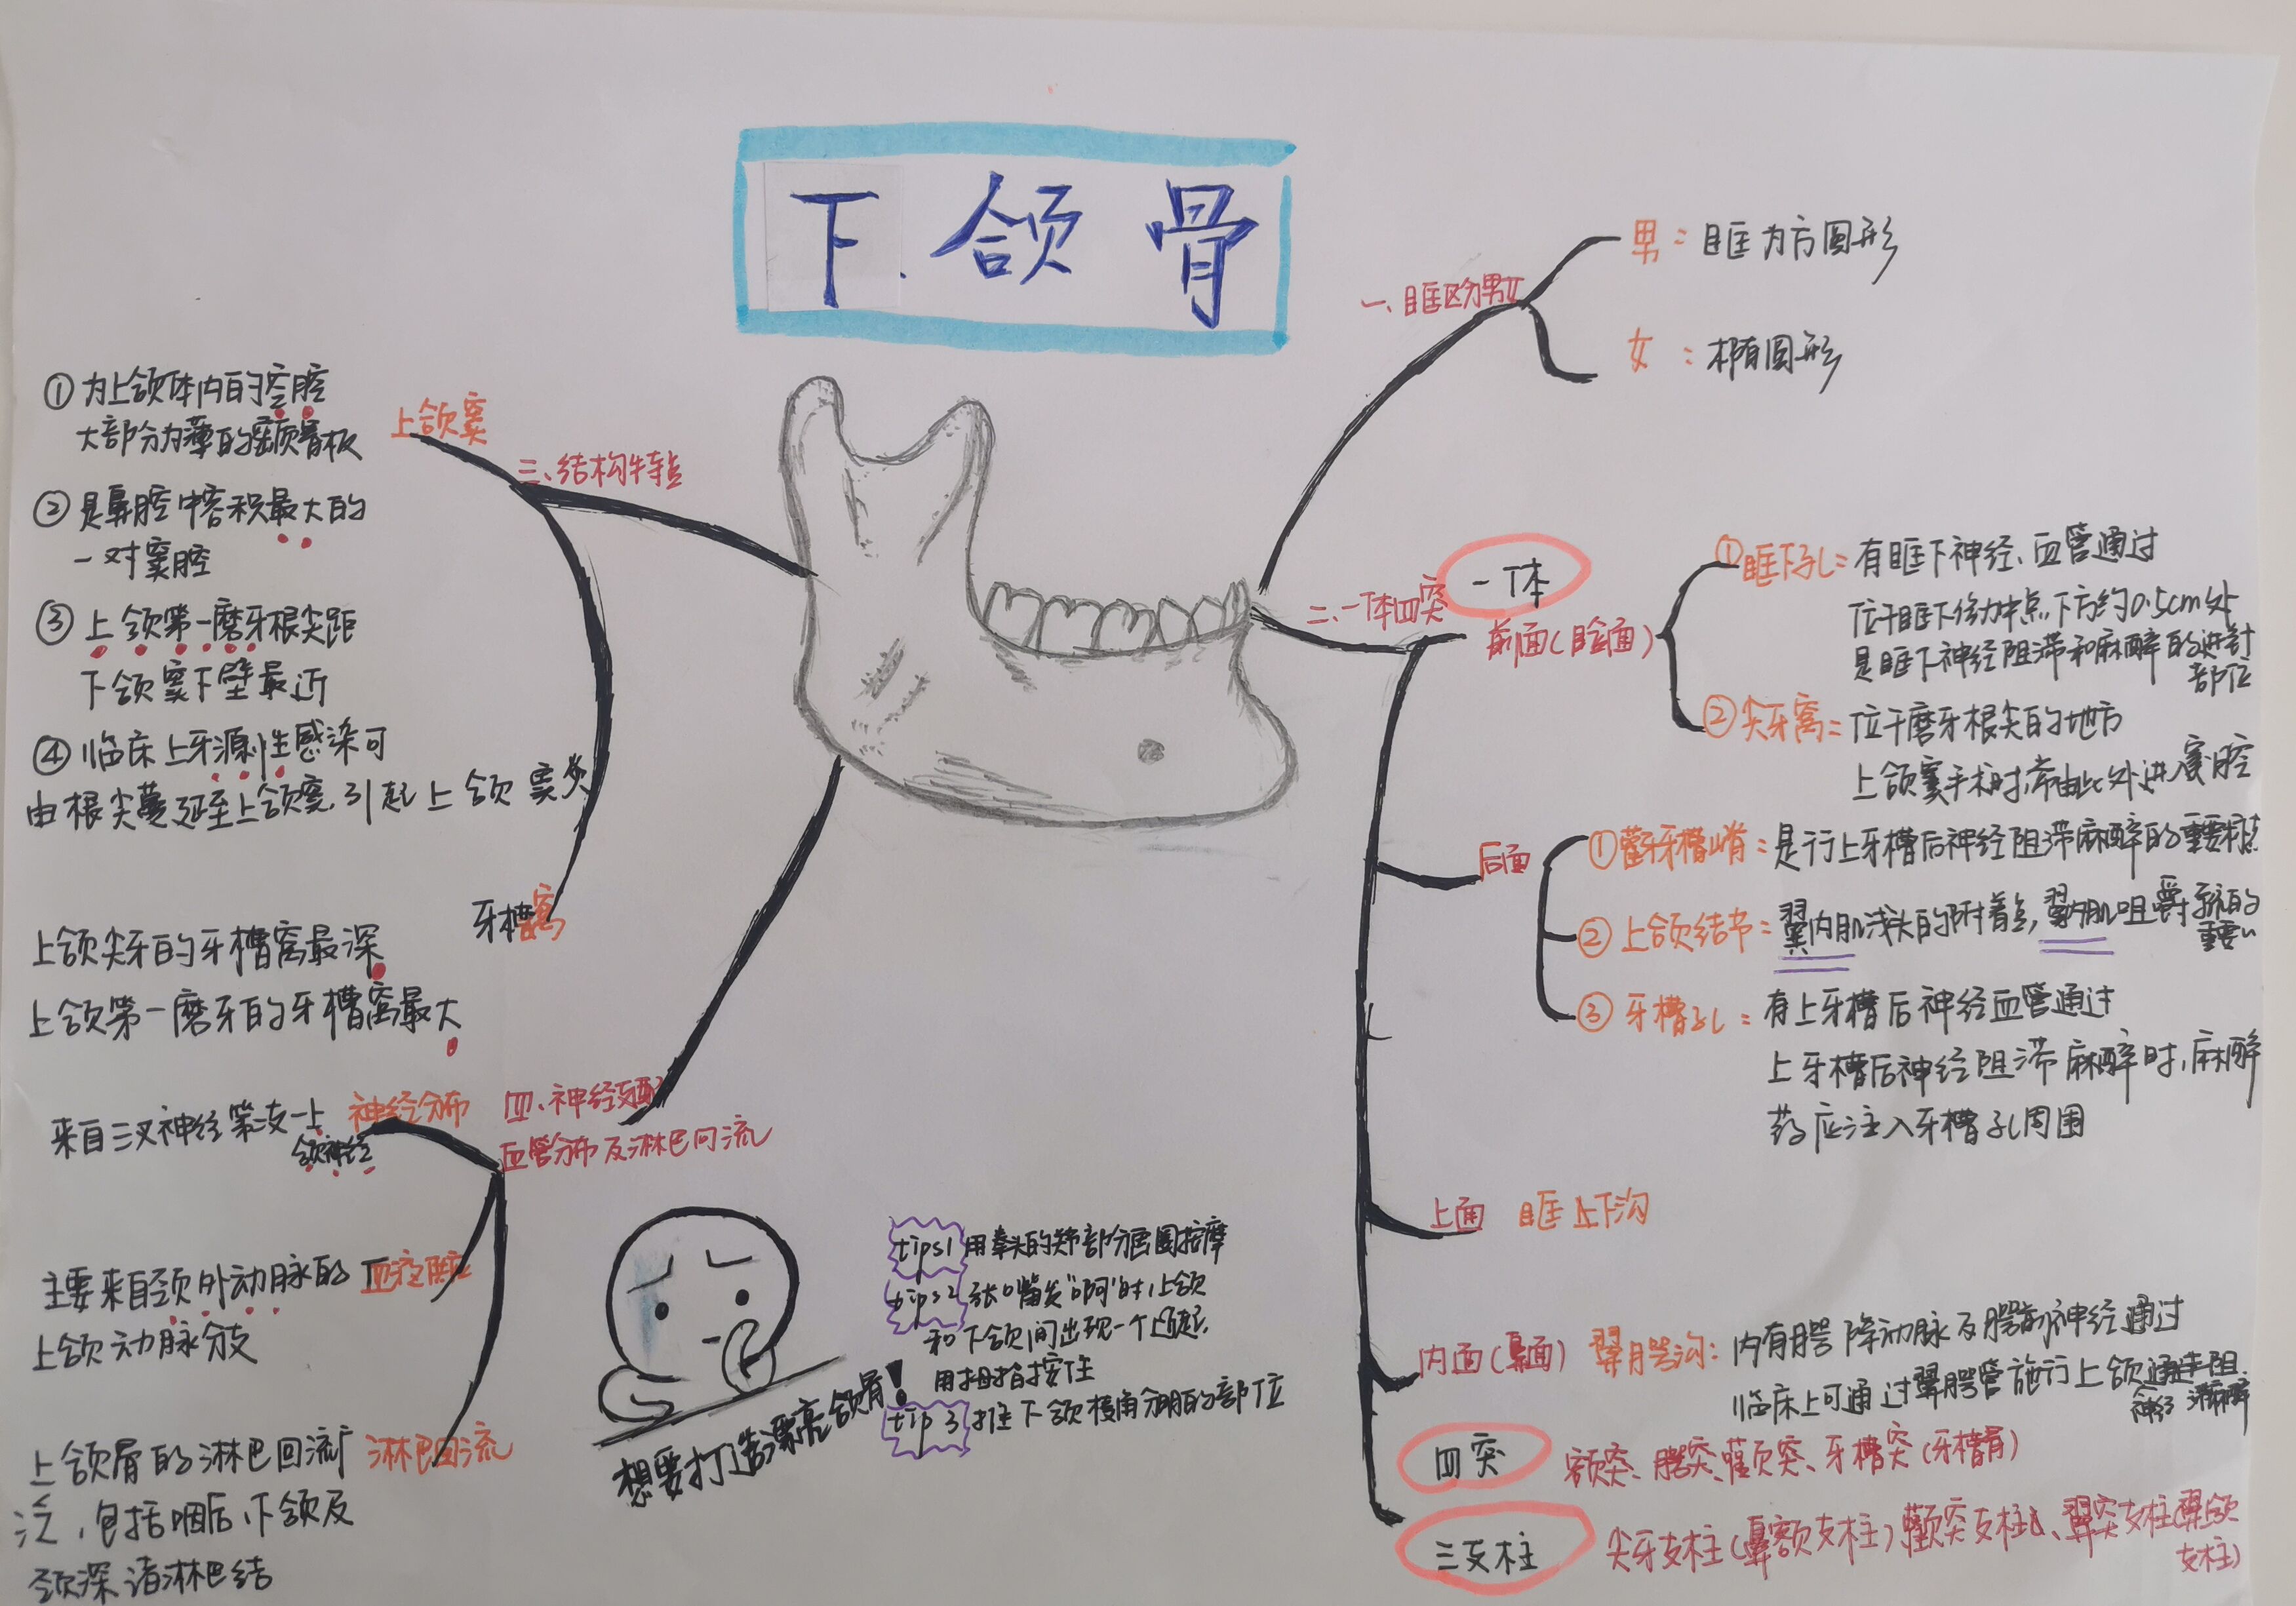 下颌骨
一、眶区分男女
男：眶为方圆形
女：椭圆形
二、一体四突
一体
前面（脸面）
①眶下孔：有眶下神经、血管通过
位于眶下缘中点下方约0.5cm处
是眶下神经阻滞和麻醉的进针
部位
②尖牙窝：位于磨牙根尖的地方
上颌窦手术时，常由此处进窦腔
后面
①颧牙槽嵴：是行上牙槽后神经阻滞麻醉的重要标志
②上颌结节：翼内肌浅头的附着点，翼内肌咀嚼系统的
重要
③牙槽孔：有上牙槽后神经血管通过
上牙槽后神经阻滞麻醉时，麻醉
药应注入牙槽孔周围
上面 眶下沟
内面（鼻面） 翼腭沟：内有腭降动脉及腭前神经通过
临床上可通过翼腭管施行上颌神经阻滞麻醉
四突 额突、腭突、颧突、牙槽突（牙槽骨）
三支柱 尖牙支柱（鼻额支柱）、颧突支柱、翼突支柱（翼颌
支柱）
三、结构特点
上颌窦
①为上颌体内的空腔
大部分为薄的密质骨板
②是鼻腔中容积最大的
一对窦腔
③上颌第一磨牙根尖距
下颌窦下壁最近
④临床上牙源性感染可
由根尖蔓延至上颌窦，引起上颌窦炎
牙槽窝
上颌尖牙的牙槽窝最深
上颌第一磨牙的牙槽窝最大
四、神经支配
血管分布及淋巴回流
神经分布
来自三叉神经第二支—上
颌神经
血液供应
主要来自颈外动脉的
上颌动脉分支
淋巴回流
上颌骨的淋巴回流广
泛，包括咽后、下颌及
颈深诸淋巴结
想要打造漂亮颌骨！
tips1 用拳头的部分画圈按摩
tips2 张口嘴发“啊”时，上颌
和下颌间出现一个凸起，
用拇指按住
tip3 推下颌棱角分明的部位